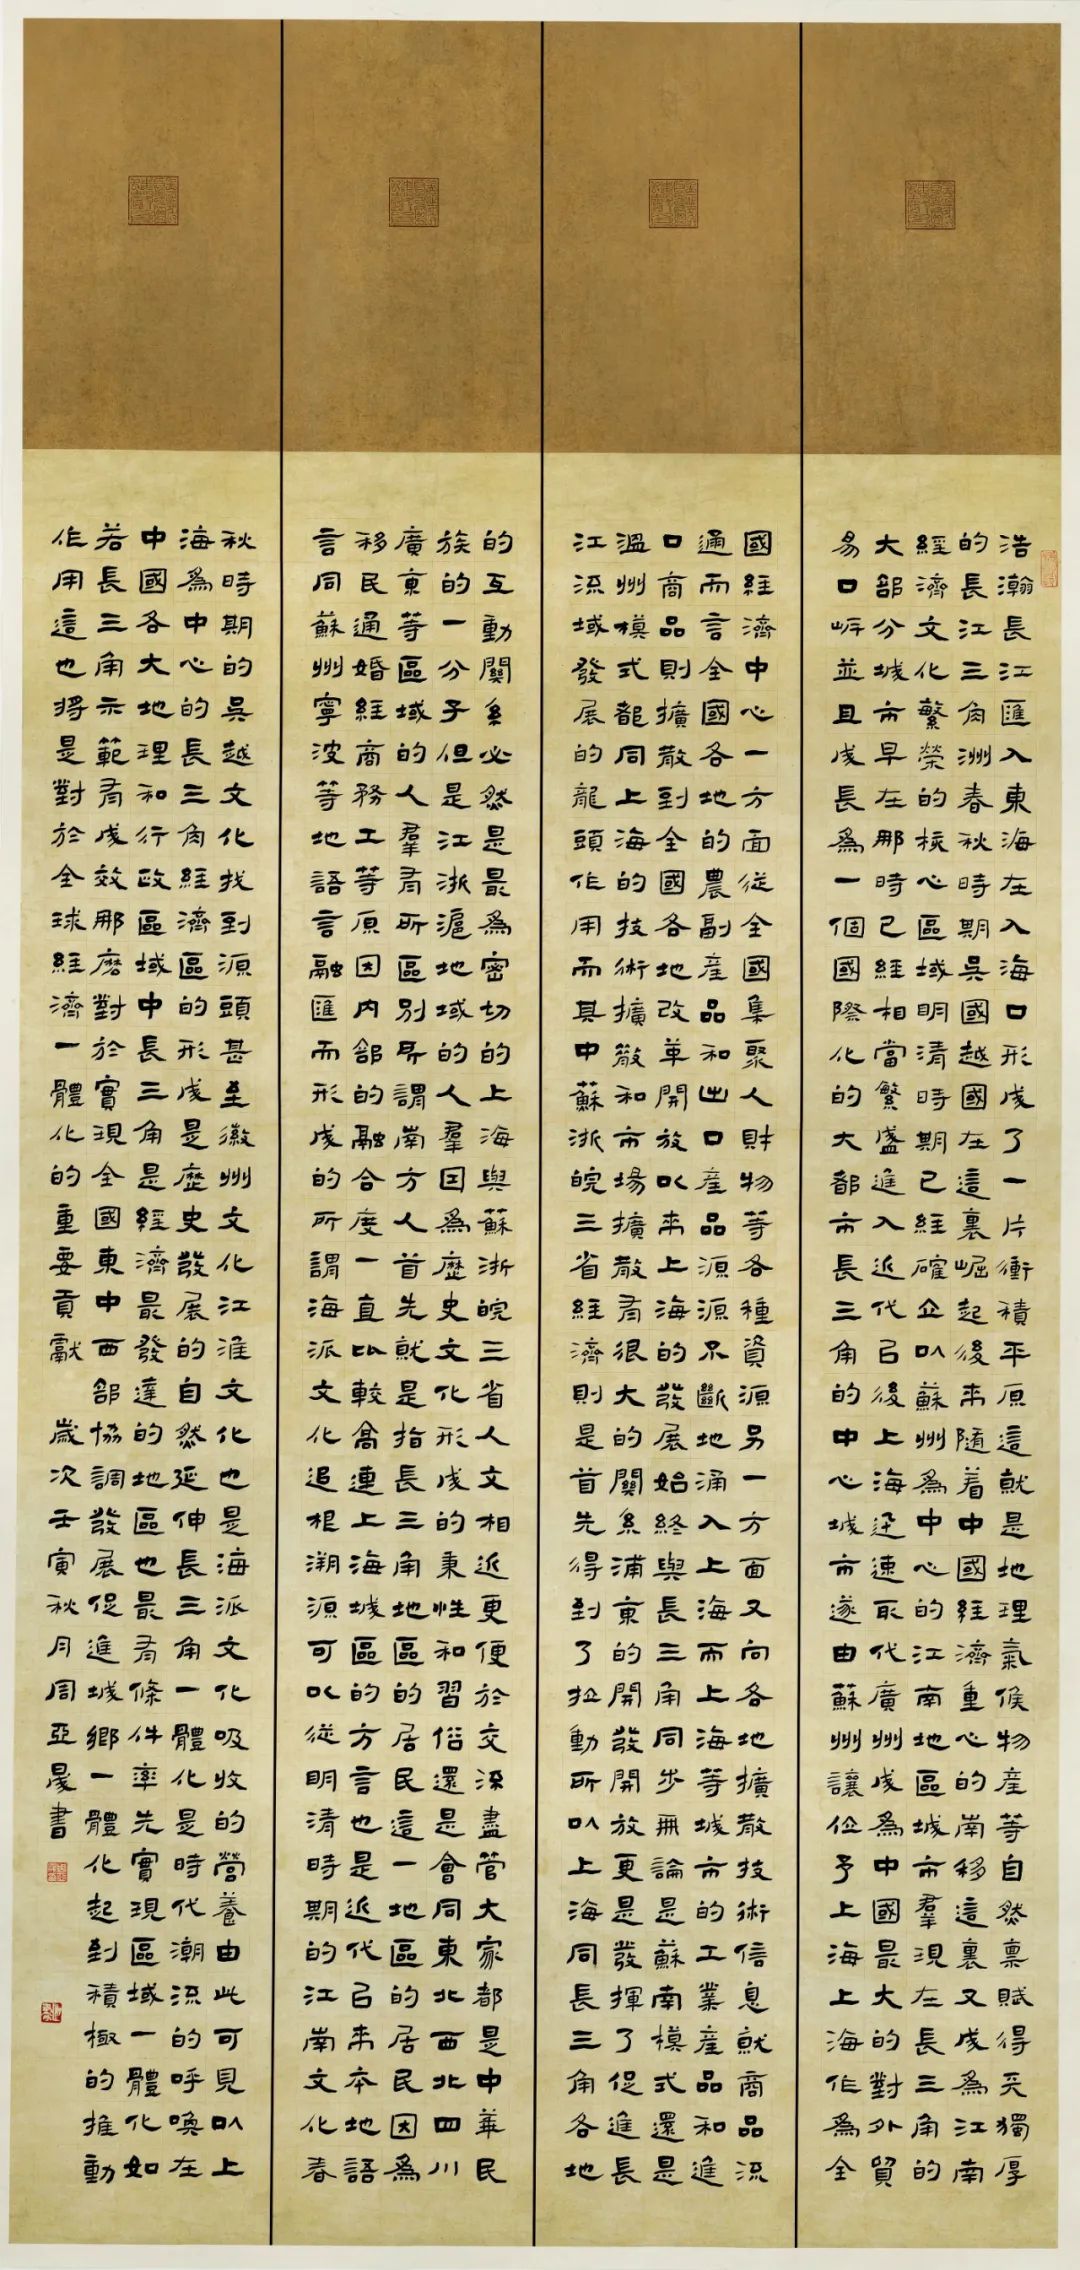 浩瀚長江匯入東海在入海口形成了一片衝積平原這就是地理氣候物產等自然稟賦得天獨厚
的長江三角洲春秋時期吳國越國在這裏崛起後來隨着中國經濟重心的南移這裏又成爲江南
經濟文化繁榮的核心區域明清時期已經確立以蘇州爲中心的江南地區城市羣現在長三角的
大部分城市早在那時已經相當繁盛進入近代以後上海迅速取代廣州成爲中國最大的對外貿
易口岸並且成長爲一個國際化的大都市長三角的中心城市遂由蘇州讓位予上海上海作爲全
國經濟中心一方面從全國集聚人財物等各種資源另一方面又向各地擴散技術信息就商品流
通而言全國各地的農副產品和出口產品源源不斷地涌入上海而上海等城市的工業產品和進
口商品則擴散到全國各地改革開放以來上海的發展始終與長三角同步無論是蘇南模式還是
溫州模式都同上海的技術擴散和市場擴散有很大的關系浦東的開發開放更是發揮了促進長
江流域發展的龍頭作用而其中蘇浙皖三省經濟則是首先得到了拉動所以上海同長三角各地
的互動關系必然是最爲密切的上海與蘇浙皖三省人文相近更便於交流盡管大家都是中華民
族的一分子但是江浙滬地域的人羣因爲歷史文化形成的秉性和習俗還是會同東北西北四川
廣東等區域的人羣有所區別所謂南方人首先就是指長三角地區的居民這一地區的居民因爲
移民通婚經商務工等原因內部的融合度一直比較高連上海城區的方言也是近代以來本地語
言同蘇州寧波等地語言融匯而形成的所謂海派文化追根溯源可以從明清時期的江南文化春
秋時期的吳越文化找到源頭甚至徽州文化江淮文化也是海派文化吸收的營養由此可見以上
海爲中心的長三角經濟區的形成是歷史發展的自然延伸長三角一體化是時代潮流的呼喚在
中國各大地理和行政區域中長三角是經濟最發達的地區也最有條件率先實現區域一體化如
若長三角示範有成效那麼對於實現全國東中西部協調發展促進城鄉一體化起到積極的推動
作用這也將是對於全球經濟一體化的重要貢獻 歲次壬寅秋月周亞晟書